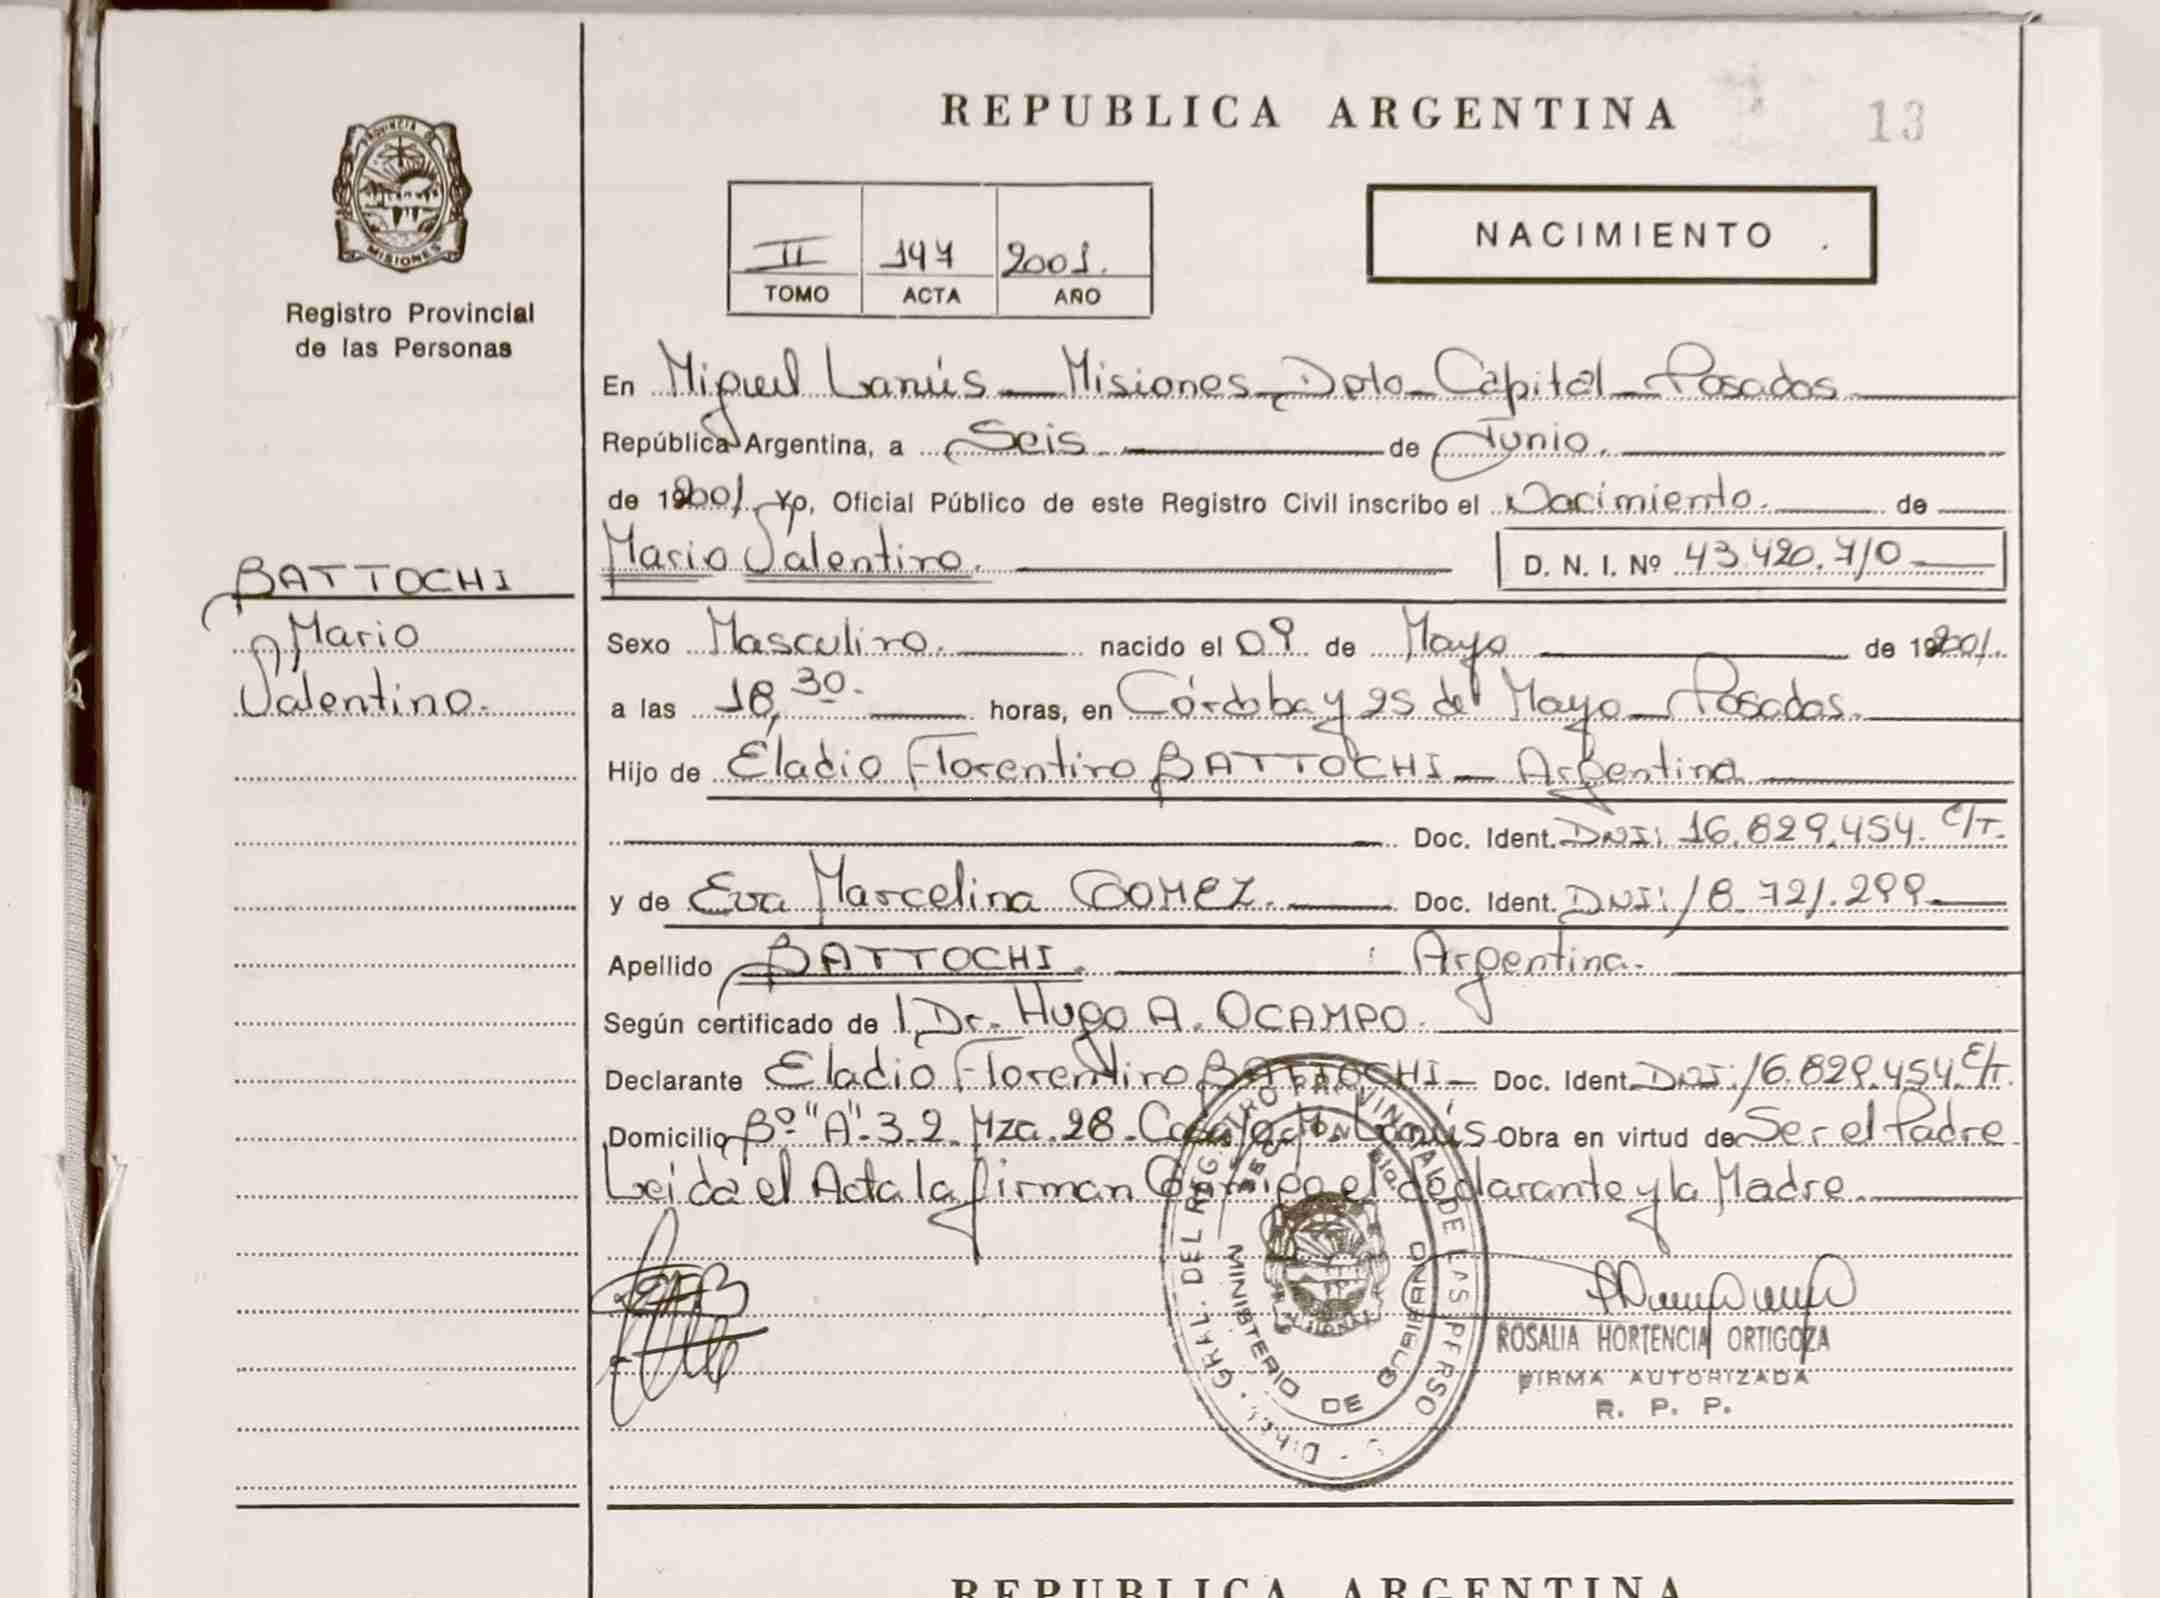 REPUBLICA ARGENTINA
13
PROVINCIA DE
MISIONES
Registro Provincial
de las Personas
II 147 2001.
TOMO ACTA AÑO
NACIMIENTO
En Miguel Lanús - Misiones - Dpto - Capital - Posadas
República Argentina, a Seis de Junio.
de 2001. Yo, Oficial Público de este Registro Civil inscribo el Nacimiento. de
Mario Valentino. D. N. I. Nº 43.420.710
BATTOCHI
Mario
Valentino.
Sexo Masculino. nacido el 09 de Mayo de 2001.
a las 18,30. horas, en Córdoba y 25 de Mayo - Posadas.
Hijo de Eladio Florentino BATTOCHI - Argentina
Doc. Ident. DNI: 16.829.454. E/T.
y de Eva Marcelina GOMEZ. Doc. Ident. DNI: 18.721.299
Apellido BATTOCHI. Argentina.
Según certificado de l Dr. Hugo A. OCAMPO.
Declarante Eladio Florentino BATTOCHI - Doc. Ident. DNI: 16.829.454. E/T.
Domicilio Bº "A". 3.2. Mza. 28. Lanús Obra en virtud de Ser el Padre
Leida el Acta la firman Conmigo el declarante y la Madre
DIREC. GRAL. DEL REGISTRO PROVINCIAL DE LAS PERSO
MINISTERIO DE GOBIERNO
ROSALIA HORTENCIA ORTIGOZA
FIRMA AUTORIZADA
R. P. P.
REPUBLICA ARGENTINA